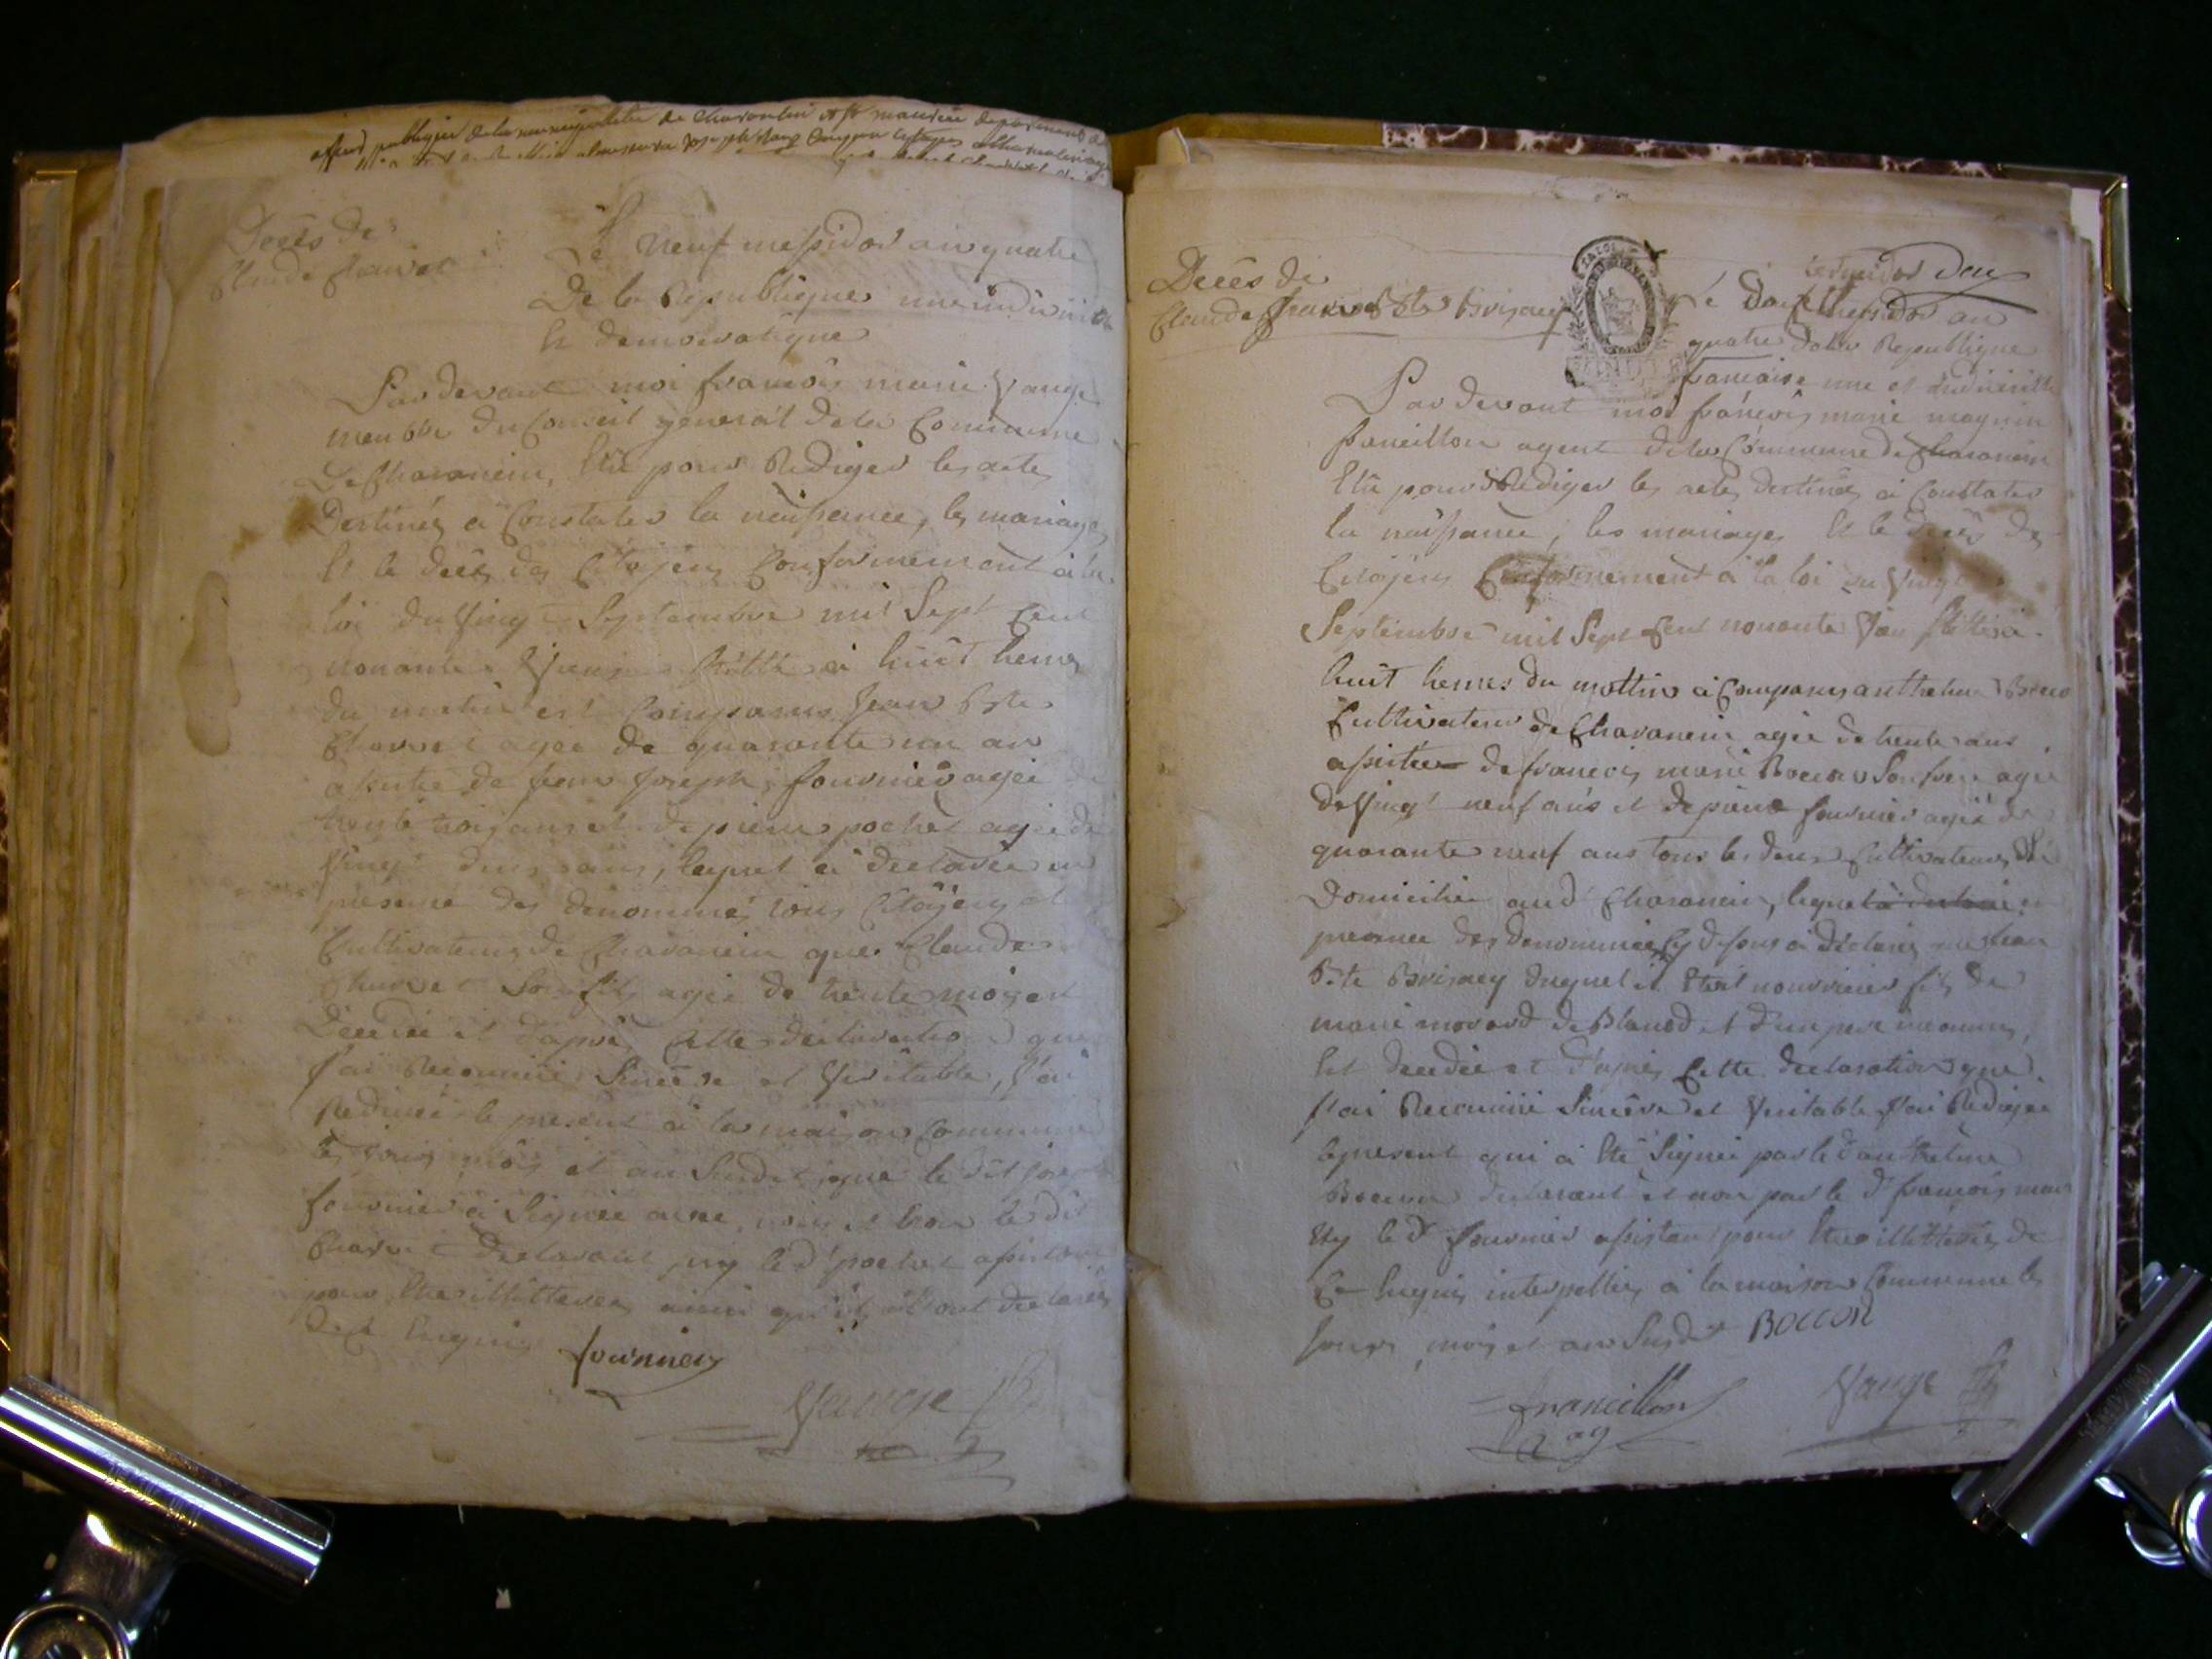 officier publique de la municipalité de Charantin et st maurice departement de
Decès de
Claude Charvet
Le neuf messidor an quatre
De la Republique une indivisible
Et democratique
Par devant moi françois marie Vange
membre du Conseil general de la Commune
De Charancin, Elû pour Rediger les actes
Destinés a Constater la naissance, les mariages
Et le decès des Citojens Conformement à la
loi du Vingt Septembre mil Sept Cent
nonante à huit heures
du matin est Comparus Jean Bte
Charvet agée de quarante un an
assisté de Joseph fournier agée de
trente trois ans et de pierre pochet agée de
Vingt deux ans, lequel à declarée en
présence des dénommés tous Citojens et
Cultivateurs de Charancin que Claude
Charvet Son fils agée de trente mois est
Décedée et d'après Cette declaration que
J'ai Reconnue Sincère et Veritable, J'ai
Redigée le present à la maison Commune
les jours mois et an Susdit que le dit joseph
fournier à Signée avec moi et non le dit
Charvet Declarant ny le d pochet assistant
pour Etre illitterés ainsi qu'ils ont declarés
De Ce Enquis
fournier
Vange
Decès de
Claude Bte Brisney
Le Messidor an
quatre de la Republique
francaise une et indivisible
Par devant moi françois marie magnin
francillon agent de la Commune de Charancin
Elû pour Rediger les actes destinés à Constater
la naissance, les mariages Et le decès des
Citojens Conformement à la loi du Vingt
Septembre mil Sept Cent nonante
huit heures du mattin à Comparus anthelme Bocon
Cultivateur de Charancin agée de trente ans
assistée de francois marie Bocon Son frere agée
de Vingt neuf ans et de pierre fournier agée de
quarante neuf ans tous les deux Cultivateurs
Domiciliés aud Charancin, lequel à declarée en
presence des denommées Cy dessus à déclarée que
Bte Brisney duquel il Etait nourricier fils de
marie morard de et d'un pere inconnu,
Est decedée et d'après Cette declaration que
J'ai Reconnue Sincère et Veritable J'ai Redigée
le present qui à Eté Signée par le d anthelme
Bocon declarant et non par le d françois marie
Ny le d fournier assistant pour Etre illitterés de
Ce Enquis interpellés à la maison Commune les
Jours, mois et an Susdit BOCCON
francillon
ag
Vange